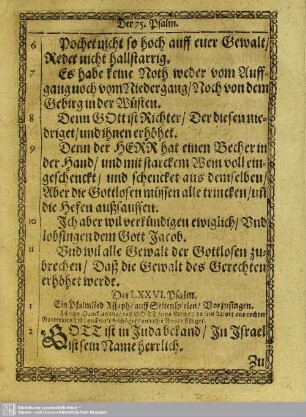 Der 75. Psalm.
6 Pochet nicht so hoch auff euer Gewalt/
Redet nicht hallstarrig.
7 Es habe keine Noth weder vom Auff-
gang noch vom Niedergang/ Noch von dem
Gebirg in der Wüsten.
8 Denn GOtt ist Richter/ Der diesen nie-
driget/ und ihnen erhöhet.
9 Denn der HERR hat einen Becher in
der Hand/ und mit starckem Wein voll ein-
geschenckt/ und schencket aus demselben/
Aber die Gottlosen müssen alle trincken/ uñ
die Hefen außsauffen.
10 Ich aber wil verkündigen ewiglich/ Vnd
lobsingen dem Gott Jacob.
11 Vnd wil alle Gewalt der Gottlosen zu-
brechen/ Daß die Gewalt des Gerechten
erhöhet werde.
Der LXXVI. Psalm.
Ein Psalmlied Assaph/ auff Seitenspielen/ Vorzusingen.
2 GOTT ist in Juda bekand/ In Israel
ist sein Name herrlich.
Zu